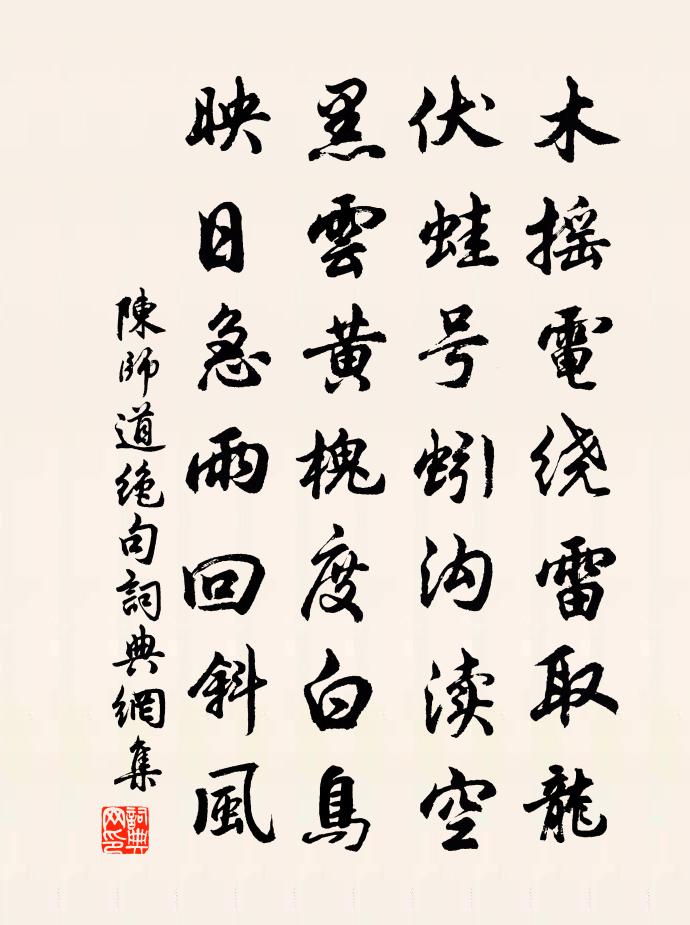 木摇電绕雷取龍
伏蛙号蚓沟渎空
黑雲黄槐度白鳥
映日急雨回斜風
陳師道绝句詞典網集
詞典網印